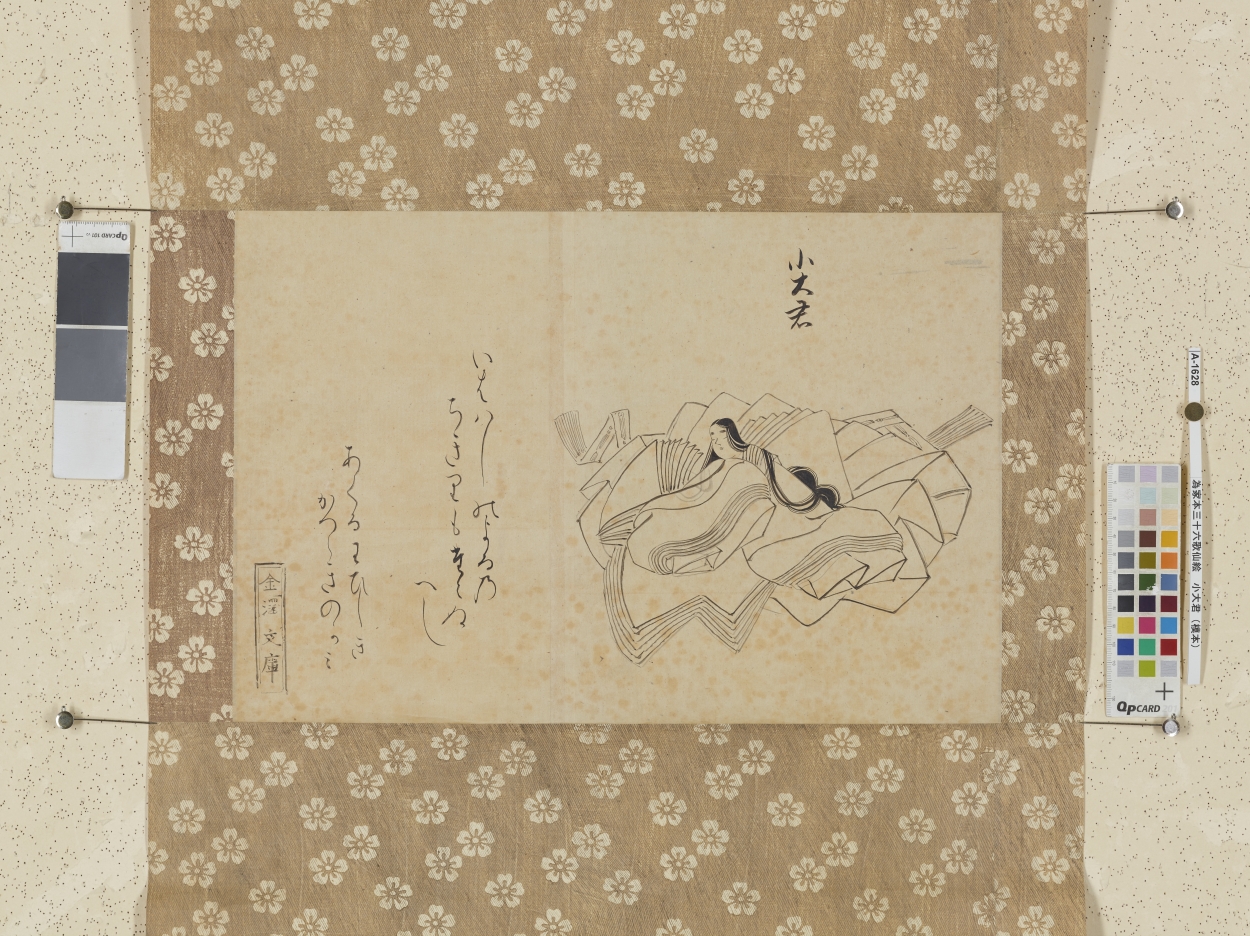 小大君
いはゝしのよる乃
ちきりもたえぬ
へし
あくるわひしき
かつらきのかミ
金澤文庫
A-1628
為家本三十六歌仙絵　小大君（模本）
QpCARD
QpCARD 101